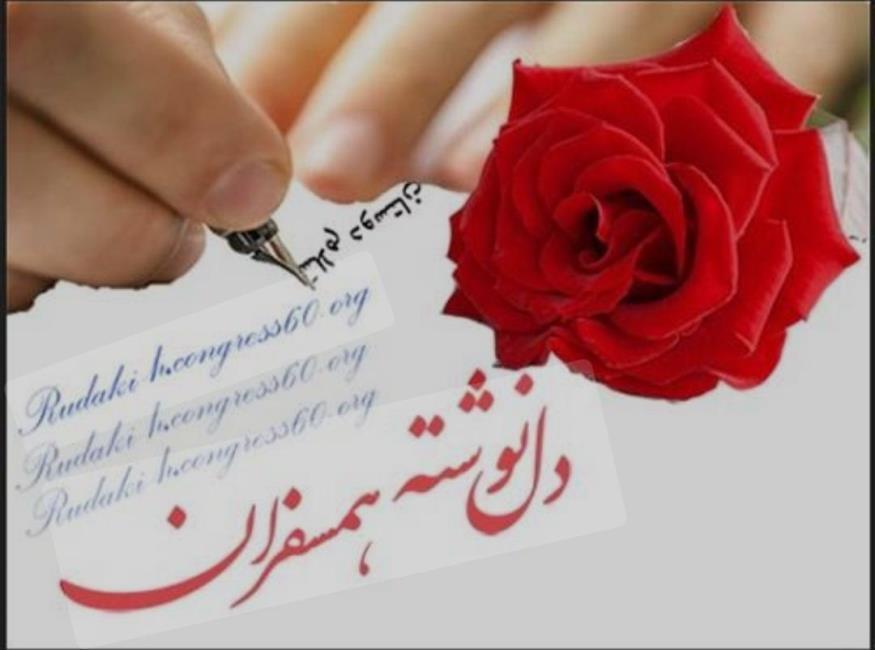 سلام دوستان
Rudaki-h.congress60.org
Rudaki-h.congress60.org
Rudaki-h.congress60.org
دلنوشته همسفران